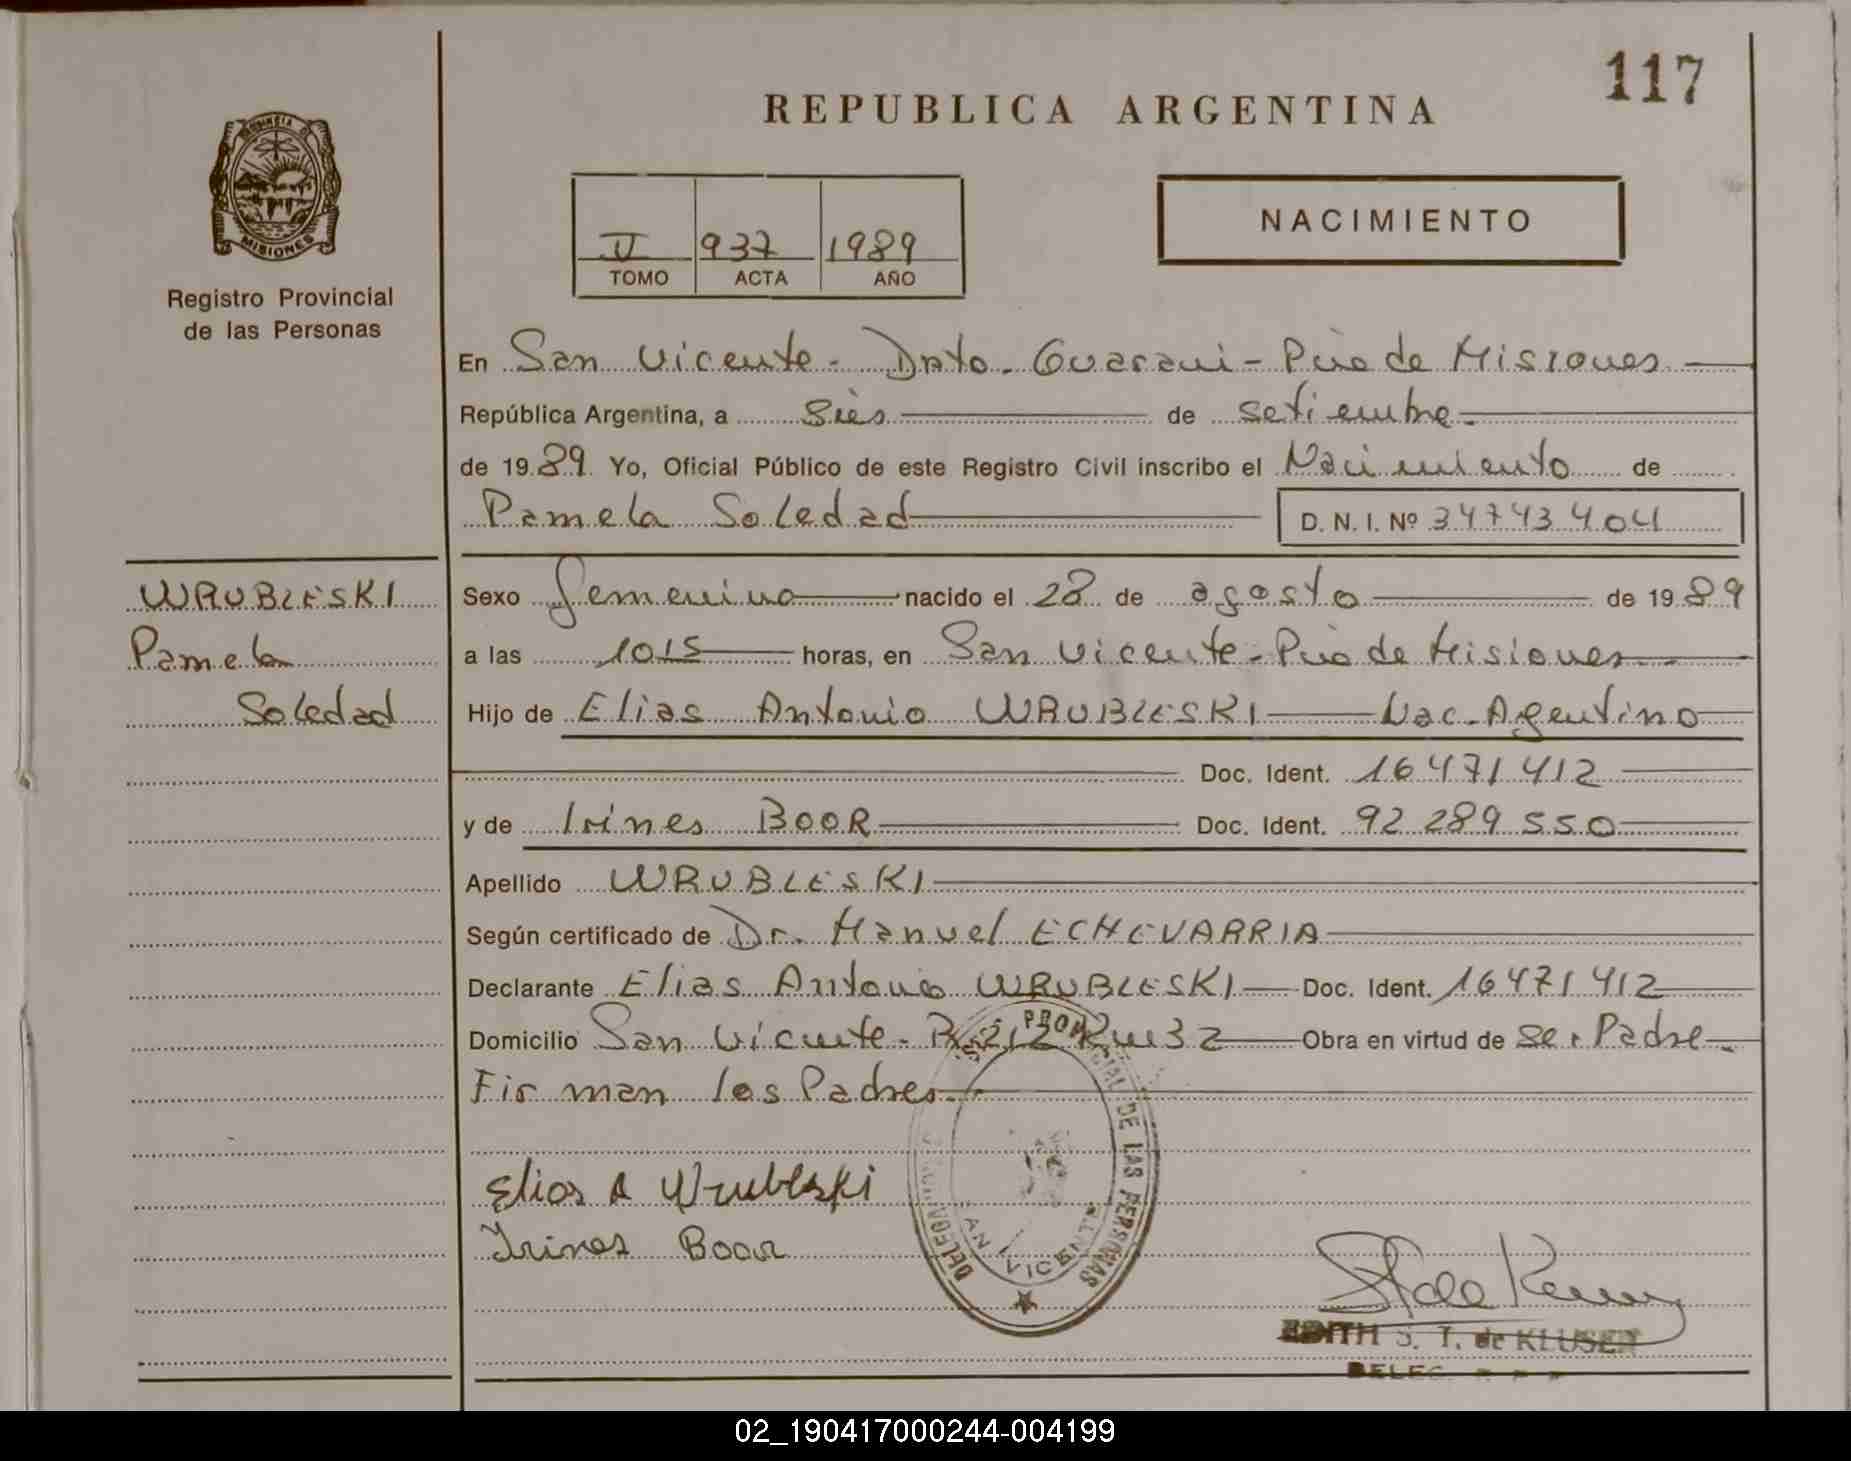 117
REPUBLICA ARGENTINA
PROVINCIA DE
MISIONES
Registro Provincial
de las Personas
II 937 1989
TOMO ACTA AÑO
NACIMIENTO
En San Vicente - Dpto. Guarani - Pcia de Misiones
República Argentina, a Siès de setiembre
de 1989 Yo, Oficial Público de este Registro Civil inscribo el Nacimiento de
Pamela Soledad D. N. I. Nº 34743404
WRUBLESKI
Pamela
Soledad
Sexo femenino nacido el 28 de agosto de 1989
a las 1015 horas, en San Vicente - Pcia de Misiones
Hijo de Elias Antonio WRUBLESKI Nac. Argentino
Doc. Ident. 16471412
y de Irines BOOR Doc. Ident. 92 289 550
Apellido WRUBLESKI
Según certificado de Dr. Manuel ECHEVARRIA
Declarante Elias Antonio WRUBLESKI Doc. Ident. 16471412
Domicilio San Vicente - R. 212 Km 32 Obra en virtud de ser Padre
Firman los Padres
Elias A Wrubleski
Irines Boor
PROVINCIAL DE LAS PERSONAS
DELEGACION
SAN VICENTE
EDITH S. T. de KLUSEN
DELEG.
02_190417000244-004199